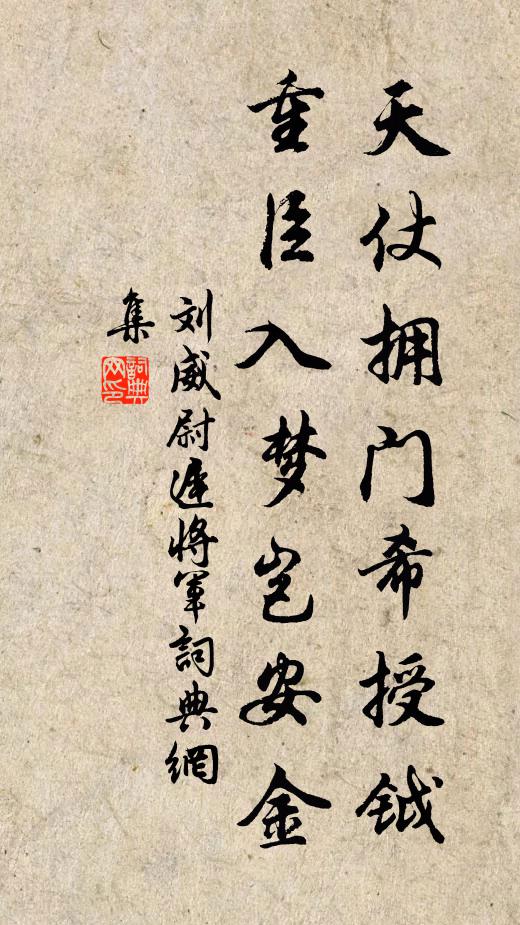 天仗拥门希授钺
重臣入梦岂安金
刘威尉遲将军詞典網
集
詞典网印